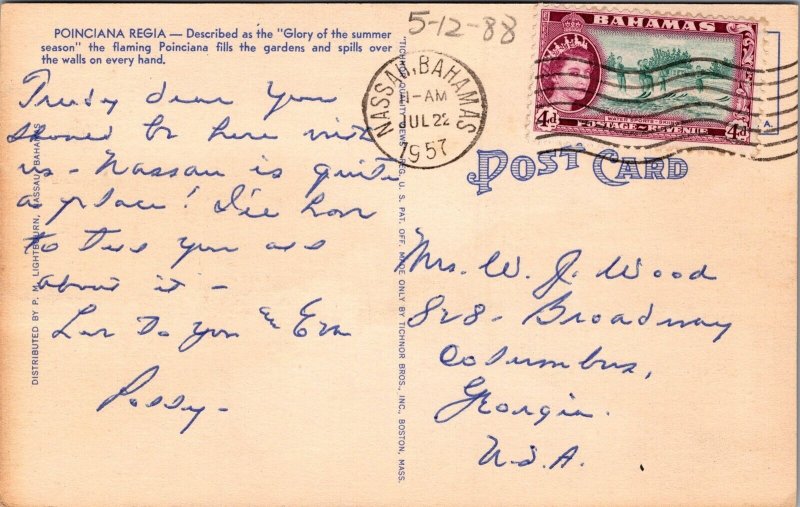 POINCIANA REGIA — Described as the "Glory of the summer
season" the flaming Poinciana fills the gardens and spills over
the walls on every hand.
Trudy dear you
should be here with
us - Nassau is quite
a place! I'll have
to tell you all
about it -
Love to you an Eva
Possy -
DISTRIBUTED BY P. M. LIGHTBOURN, NASSAU, BAHAMAS
"TICHNOR QUALITY VIEWS," REG. U. S. PAT. OFF. MADE ONLY BY TICHNOR BROS., INC., BOSTON, MASS.
5-12-88
NASSAU, BAHAMAS
1-AM
JUL 22
1957
BAHAMAS
4d
POSTAGE & REVENUE
4d
POST CARD
Mrs. W. J. Wood
828 - Broadway
Columbus,
Georgia.
U.S.A.